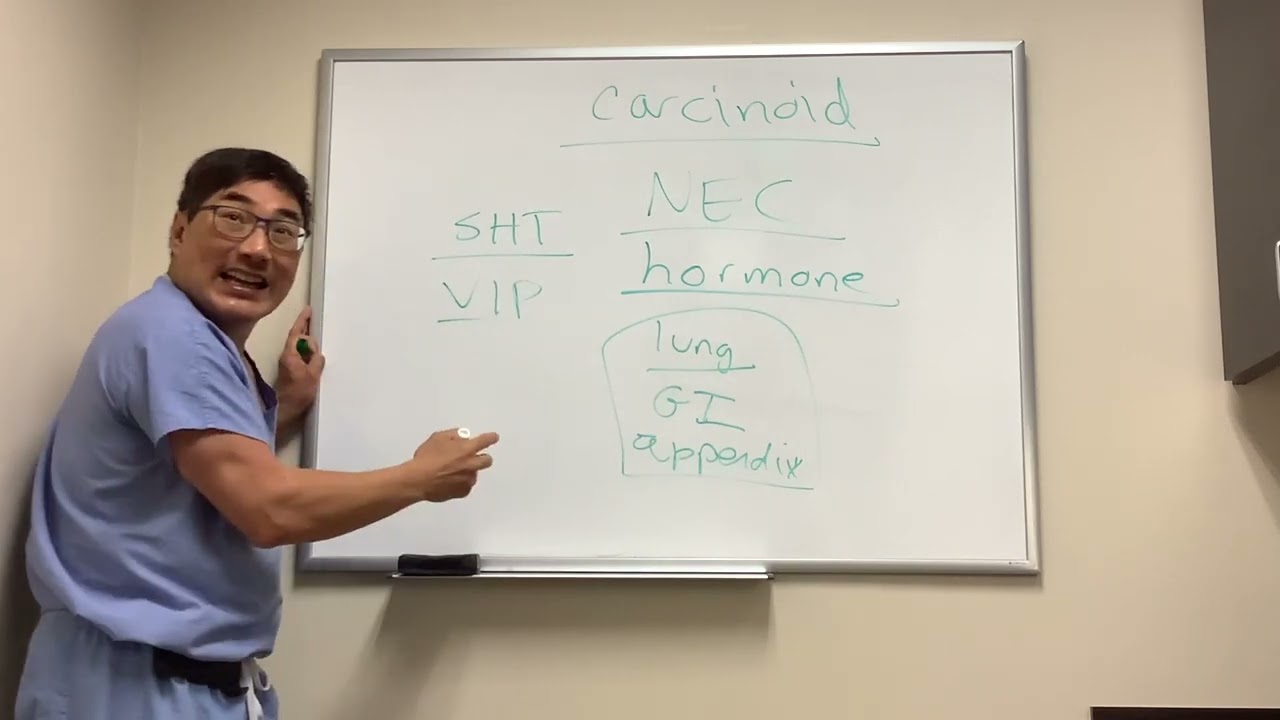 carcinoid
NEC
hormone
5HT
VIP
lung
GI
appendix